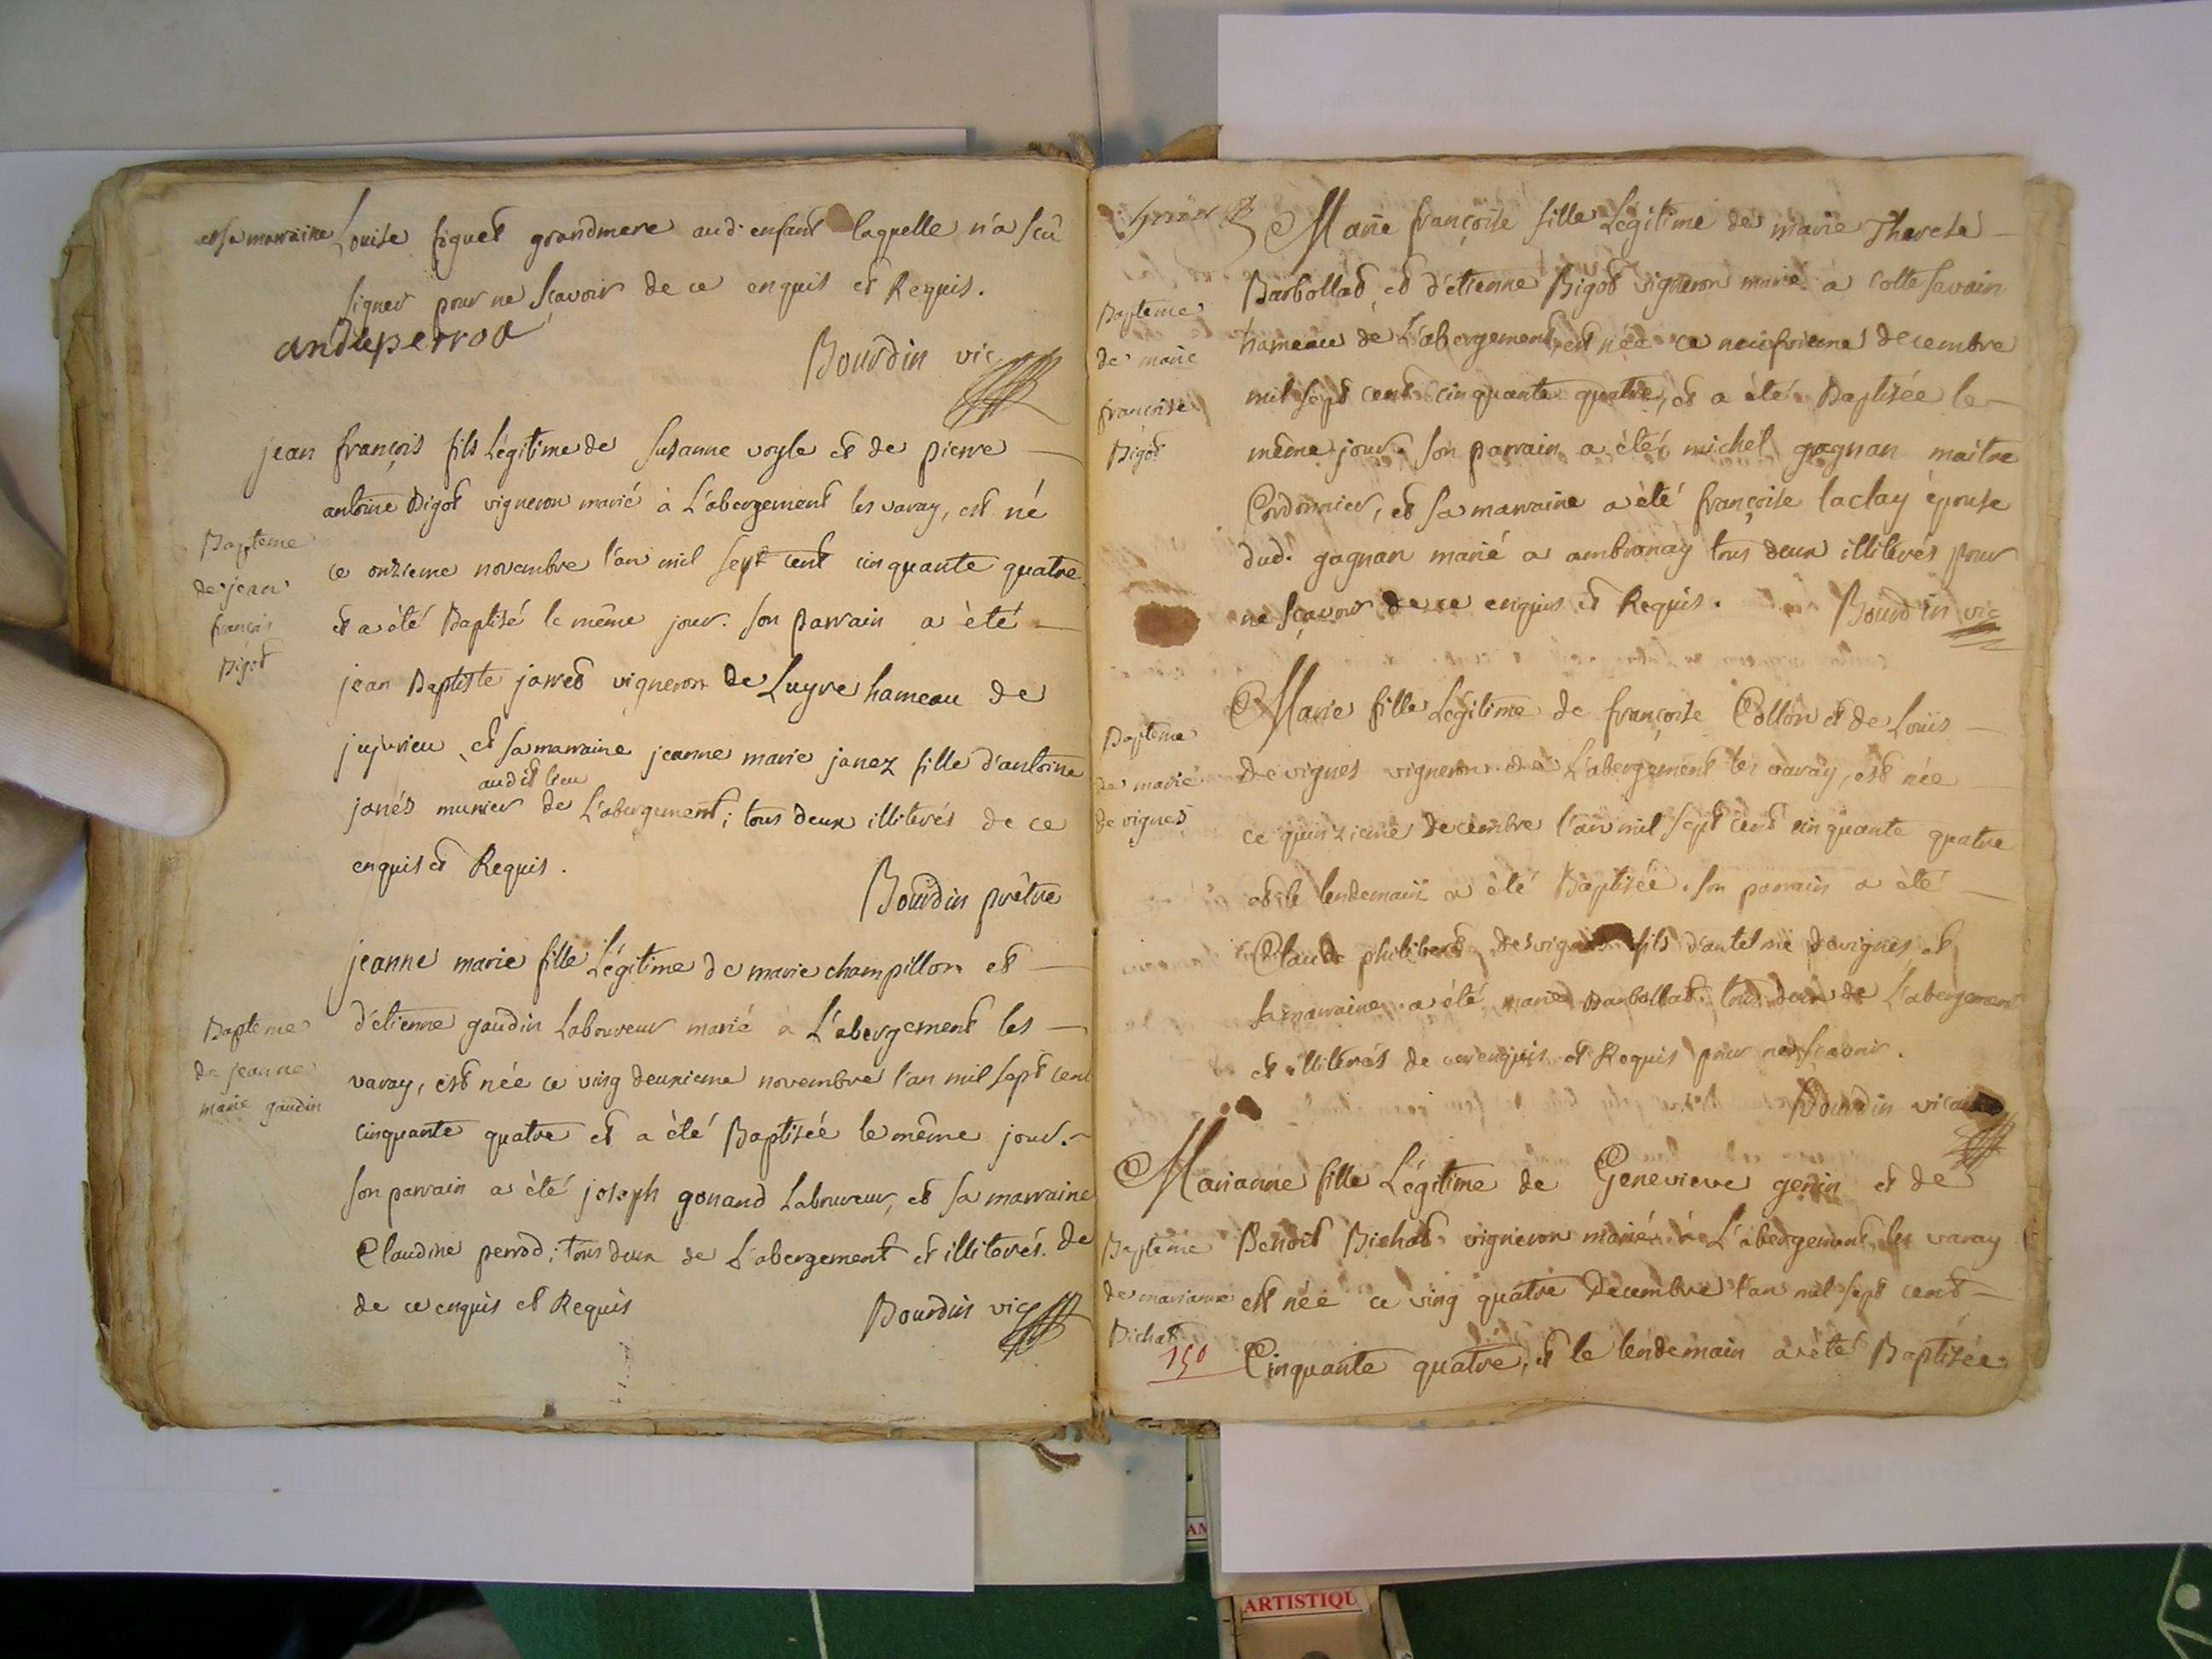 et sa marraine Louise figuet grandmere aud. enfant laquelle n'a scû
signer pour ne sçavoir de ce enquis et Requis.
Bourdin vic
jean françois fils Légitime de susanne vogle et de pierre
antoine Bigot vigneron marié à L'abergement les varay, est né
Bapteme
de jean
françois
Bigot
ce onzieme novembre l'an mil sept cent cinquante quatre
et a èté Baptisé le même jour. son parrain a èté
jean Baptiste jarred vigneron de Luyre hameau de
jujurieu, et sa marraine jeanne marie janez fille d'antoine
audit lieu
janés munier de L'abergement; tous deux illiterés de ce
enquis et Requis.
Bourdin prêtre
jeanne marie fille Légitime de marie champillon et
Bapteme
de jeanne
marie gaudin
d'étienne gaudin Laboureur marié à L'abergement les
varay, est née ce ving deuxieme novembre l'an mil sept cent
cinquante quatre et a èté Baptisée le même jour.
son parrain a èté joseph gonand Laboureur, et sa marraine
Claudine perrod; tous deux de L'abergement et illiterés. de
de ce enquis et Requis
Bourdin vic
Marie françoise fille Légitime de marie Therese
Bapteme
de marie
françoise
Bigot
Barbollat, et d'étienne Bigot vigneron marié a Cotte savoin
hameau de L'abergement, est née ce neufvieme decembre
mil sept cent cinquante quatre, et a èté Baptisée le
même jour. son parrain a èté michel gagnan maitre
Cordonnier, et sa marraine a èté françoise laclay épouse
dud. gagnan marié a ambronay tous deux illiterés pour
ne sçavoir de ce enquis et Requis.
Bourdin vic
Marie fille Légitime de françoise Collon et de Loüis
Bapteme
de marie
de vignes
De vignes vigneron de L'abergement les varay, est née
ce quinzieme decembre l'an mil sept cent cinquante quatre
et le lendemain a èté Baptisée. son parrain a èté
Claude philibert desvignes fils d'antelme devignes, et
sa marraine a èté marie Barbollat, tous deux de L'abergement
et illiterés de ce enquis et Requis pour ne sçavoir.
Bourdin vicaire
Marianne fille Légitime de Genevieve genin et de
Bapteme
de marianne
Bichat
Benoit Bichat vigneron marié à L'abergement les varay
est née ce ving quatre Decembre l'an mil sept cent
Cinquante quatre, et le lendemain a èté Baptisée
150
ARTISTIQU